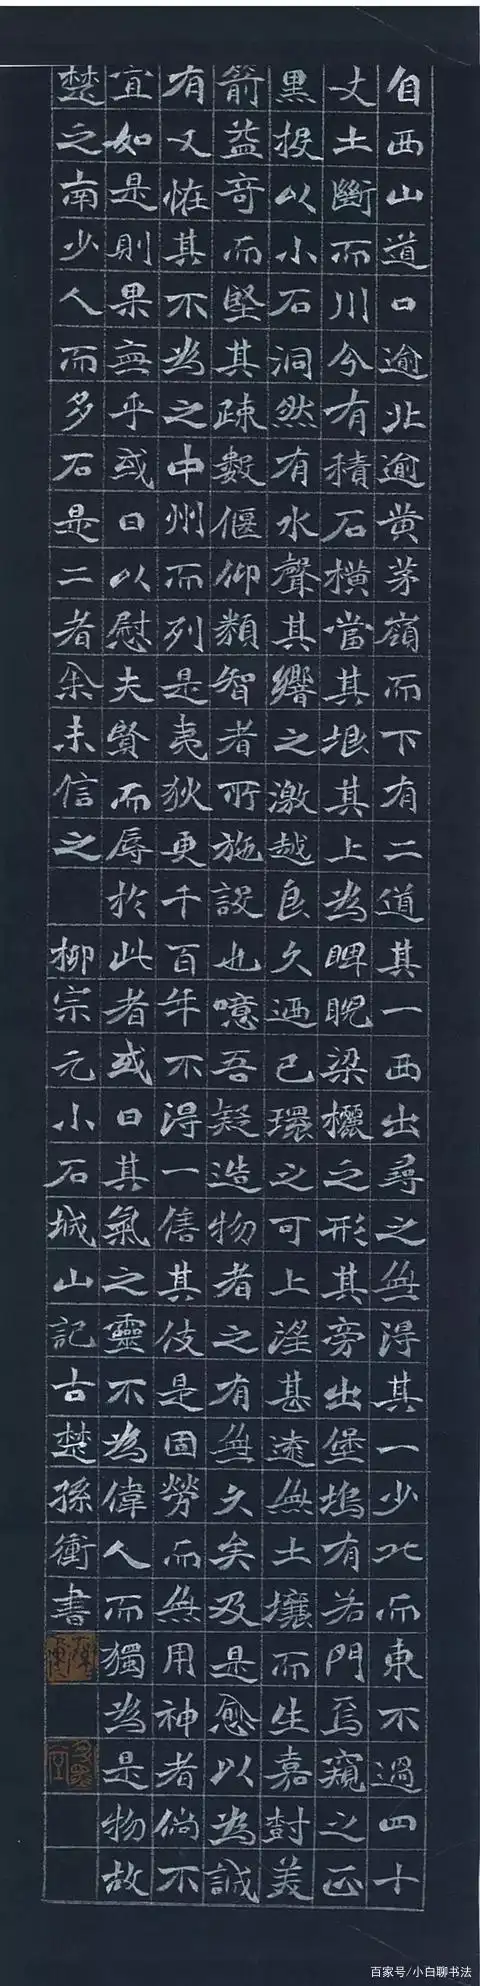 自西山道口逾北逾黄茅嶺而下有二道其一西出尋之無得其一少北而東不過四十
丈土斷而川分有積石橫當其垠其上為睥睨梁欐之形其旁出堡塢有若門焉窺之正
黑投以小石洞然有水聲其響之激越良久迺已環之可上望甚遠無土壤而生嘉樹美
箭益奇而堅其疎數偃仰類智者所施設也噫吾疑造物者之有無久矣及是愈以為誠
有又恠其不為之中州而列是夷狄更千百年不得一售其伎是固勞而無用神者倘不
宜如是則果無乎或曰以慰夫賢而辱於此者或曰其氣之靈不為偉人而獨為是物故
楚之南少人而多石是二者余未信之 柳宗元小石城山記古楚孫衝書
百家号/小白聊书法